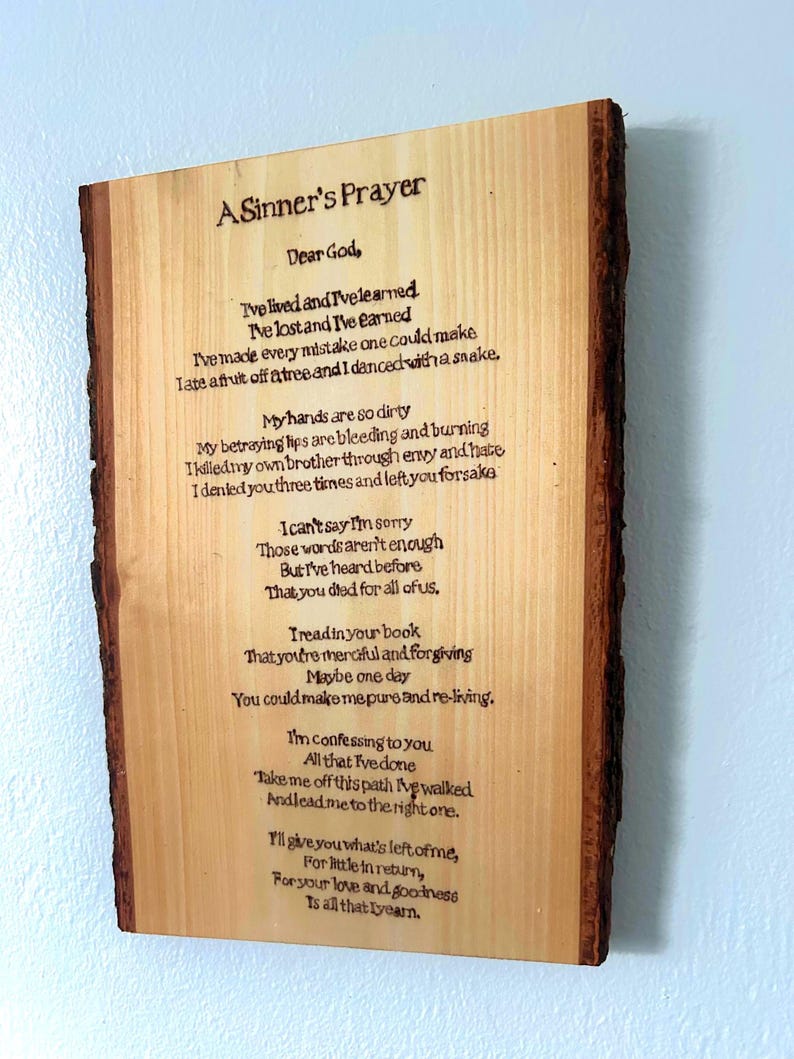 A Sinner's Prayer
Dear God,
I've lived and I've learned
I've lost and I've earned
I've made every mistake one could make
I ate a fruit off a tree and I danced with a snake.
My hands are so dirty
My betraying lips are bleeding and burning
I killed my own brother through envy and hate
I denied you three times and left you forsake
I can't say I'm sorry
Those words aren't enough
But I've heard before
That you died for all of us.
I read in your book
That you're merciful and forgiving
Maybe one day
You could make me pure and re-living.
I'm confessing to you
All that I've done
Take me off this path I've walked
And lead me to the right one.
I'll give you what's left of me,
For little in return,
For your love and goodness
Is all that I yearn.